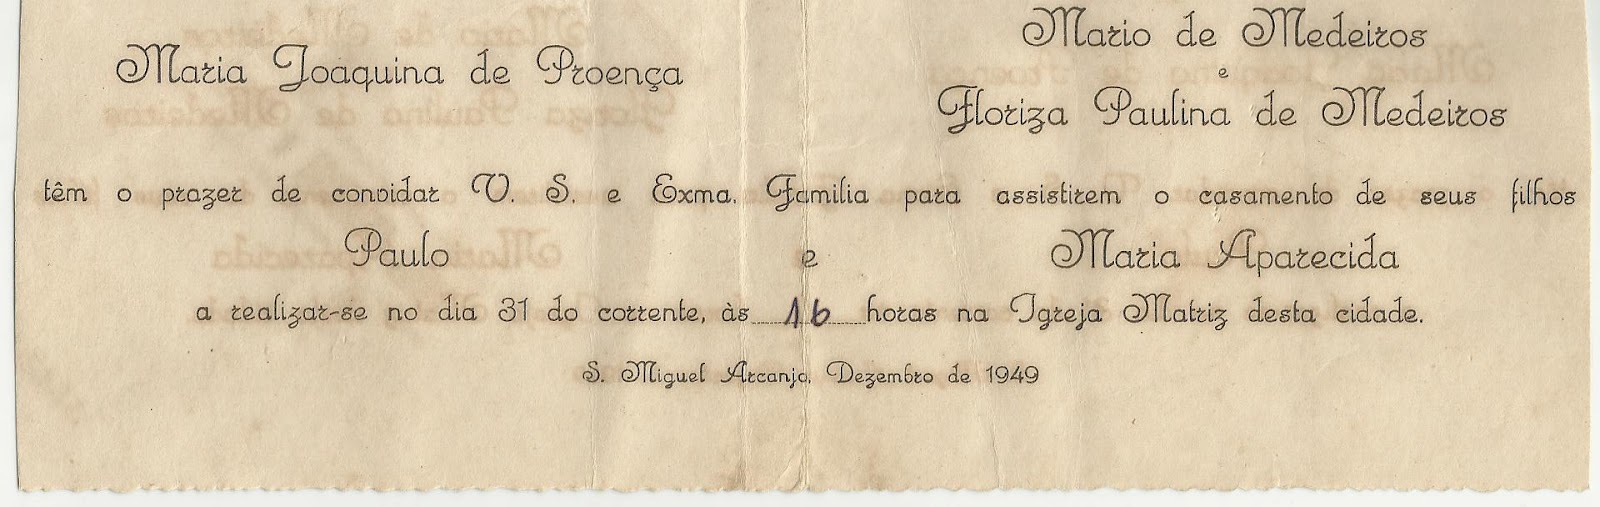 Mario de Medeiros
Maria Joaquina de Proença
e
Floriza Paulina de Medeiros
têm o prazer de convidar V. S. e Exma. Familia para assistirem o casamento de seus filhos
Paulo e Maria Aparecida
a realizar-se no dia 31 do corrente, às 16 horas na Igreja Matriz desta cidade.
S. Miguel Arcanjo, Dezembro de 1949